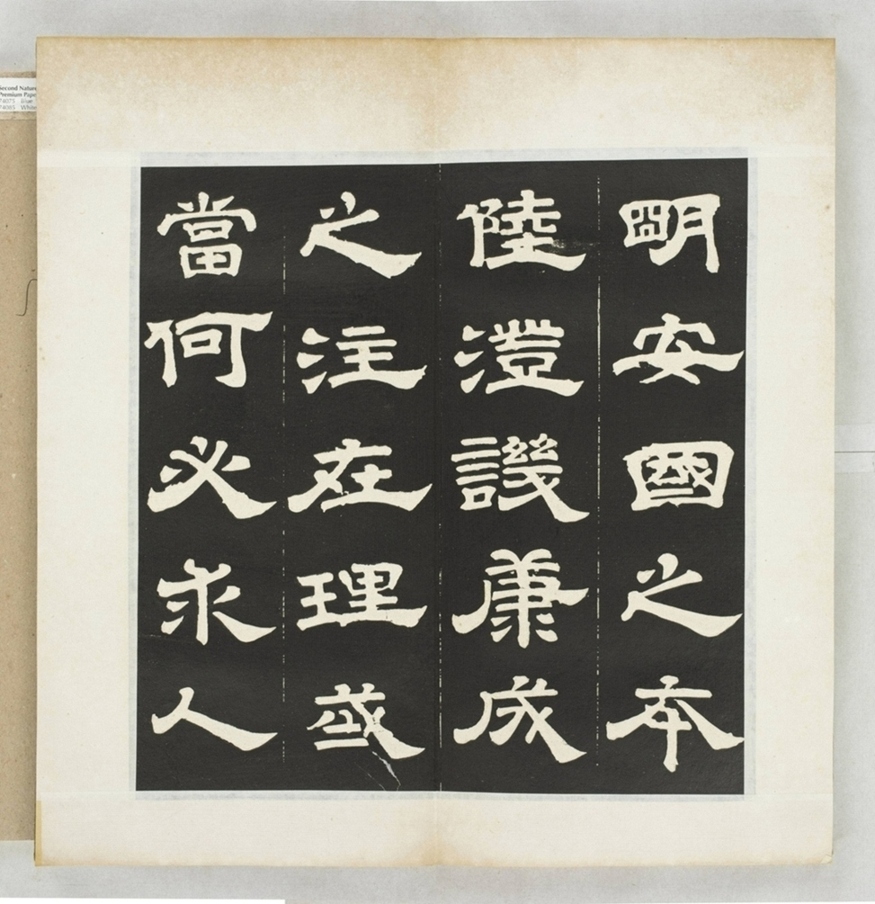 明安國之本
陸澄譏康成
之注在理或
當何必求人
Second Nature
Premium